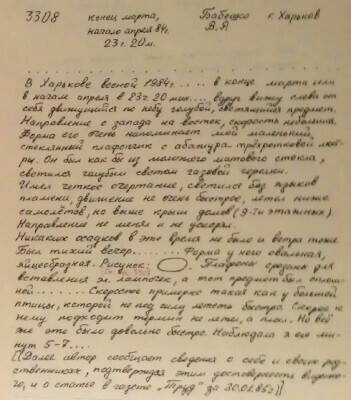 3308 конец марта, Бабешко г. Харьков
начало апреля 84г. В.Я
23 ч. 20 м.
В Харькове весной 1984г..... в конце марта или
в начале апреля в 23ч. 20 мин.... вдруг вижу слева от
себя движущийся по небу голубой, светящийся предмет.
Направление с запада на восток, скорость небольшая.
Форма его очень напоминает мой маленький,
стеклянный плафончик с абажура трёхрожковой люст-
ры. Он был как бы из молочного матового стекла,
светился голубым светом газовой горелки.
Имел четкое очертание, светился без языков
пламени, движение не очень быстрое, летел ниже
самолётов, но выше крыш домов (9-ти этажных).
Направление не менял и не ускорял.
Никаких осадков в это время не было и ветра тоже.
Был тихий вечер...... Форма у него овальная,
яйцеобразная. Рисунок: . Плафоны сделаны для
вставления эл. лампочек, а тот предмет был сплош-
ной...... Скоростью примерно такая как у большой
птицы, которой не под силу лететь быстро. Скорее к
нему подходит термин не летел, а плыл. Но всё
же это было довольно быстро. Наблюдала я его ми-
нут 5-7...
[[Далее автор сообщает сведения о себе и своих род-
ственниках, подтверждая этим достоверность виденно-
го, и о статье в газете „Труд" за 30.01.85г.]]